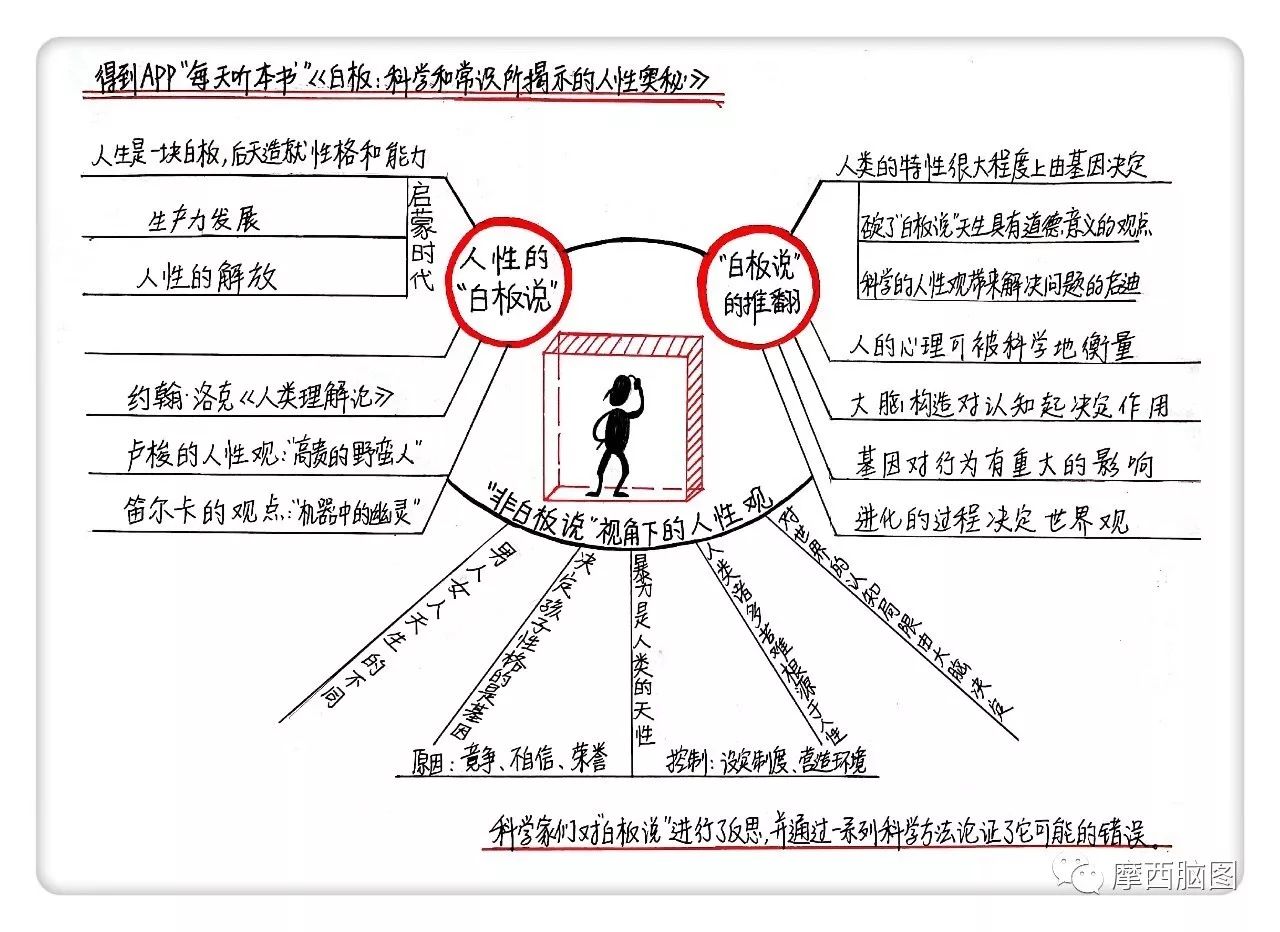 得到APP"每天听本书"《白板:科学和常识所揭示的人性奥秘》
人生是一块白板,后天造就性格和能力
启蒙时代
生产力发展
人性的解放
人性的
"白板说"
约翰·洛克《人类理解论》
卢梭的人性观:"高贵的野蛮人"
笛尔卡的观点:"机器中的幽灵"
"白板说"
的推翻
人类的特性很大程度上由基因决定
破除了"白板说"天生具有道德意义的观点
科学的人性观带来解决问题的启迪
人的心理可被科学地衡量
大脑构造对认知起决定作用
基因对行为有重大的影响
进化的过程决定世界观
"非白板说"视角下的人性观
男人女人天生的不同
决定孩子性格的是基因
暴力是人类的天性
原因:竞争、不自信、荣誉
控制:设定制度、营造环境
人类诸多苦难根源于人性
对世界的认知局限由大脑决定
科学家们对"白板说"进行了反思,并通过一系列科学方法论证了它可能的错误。
摩西脑图